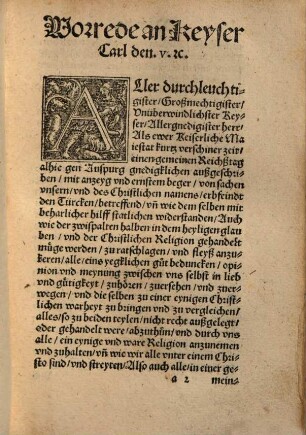 Vorrede an Keyser
Carl den. v. ꝛc.
ALler durchleuchti-
gister / Großmechtigister /
Vnüberwindlichster Key-
ser / Allergnedigister herr /
Als ewer Keiserliche Ma
iestat kurtz verschiner zeit
einen gemeinen Reichßtag
alhie gen Auspurg gnedigklichen außgeschri
ben / mit anzeyg vnd ernstem beger / von sachen
vnsern / vnd des Christlichen namens / erbfeindt
den Türcken / betreffend / vñ wie dem selben mit
beharlicher hilff statlichen widerstanden / Auch
wie der zwispalten halben in dem heyligen glau
ben / vnd der Christlichen Religion gehandelt
müge werden / zu ratschlagen / vnd fleyß anzu-
keren / alle / eins yegklichen güt beduncken / opi-
nion vnd meynung zwischen vns selbst in lieb
vnd gütigkeyt / zuhören / zuersehen / vnd zuer-
wegen / vnd die selben zu einer eynigen Christ-
lichen warheyt zu bringen vnd zu vergleichen /
alles / so zu beiden teylen / nicht recht außgelegt /
oder gehandelt were / abzuthün / vnd durch vns
alle / ein eynige vnd ware Religion anzunemen
vnd zuhalten / vñ wie wir alle vnter einem Chri
sto sind / vnd streyten / Also auch alle / in einer ge-
a 2 mein-